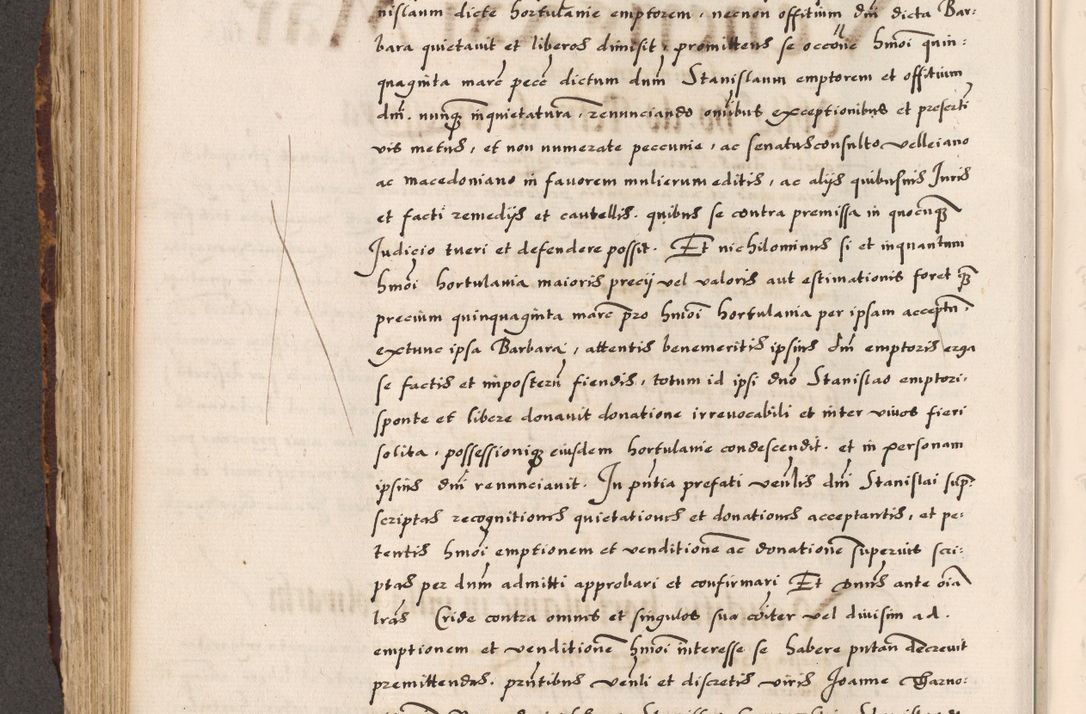 nislaum dicte hortulanie emptorem, necnon offitium dni dicta Bar-
bara quietauit et liberos dimisit, promittens se occone hmoi quin:
quaginta marc pecc dictum dnm Stanislaum emptorem et offitium
dni. nunqz inquietatura, renunciando omibus exceptionibus et preserti
vis metus, et non numerate peccunie, ac senatusconsulto velleiano
ac macedoniano in fauorem mulierum editis, ac alijs quibusuis Juris
et facti remedijs et cautellis. quibus se contra premissa in quocunqz
Judicio tueri et defendere possit. Et nichilominus si et inquantum
hmoi hortulania maioris precij vel valoris aut estimationis foret qz
precium quinquaginta marc pro hmoi hortulania per ipsam acceptu,
extunc ipsa Barbara, attentis benemeritis ipsius dni emptoris erga
se factis et imposteru fiendis, totum id ipsi dno Stanislao emptori.
sponte et libere donauit donatione irreuocabili et inter viuos fieri
solita, possessioniqz eiusdem hortulanie condescendit. et in personam
ipsius dni renunciauit. In pntia prefati venlis dni Stanislai sup-
scriptas recognitiones quietationes et donationes acceptantis, et pe:
tentis hmoi emptionem et venditione ac donatione superius scri:
ptas per dnm admitti approbari et confirmari Et pnms ante oia
lras Cride contra omnes et singulos sua coiter vel diuisim ad.
emptionem et venditione hmoi interesse se habere putan decreuit
premittendas. pntibus venli et discretis viris Joanne Tharno: